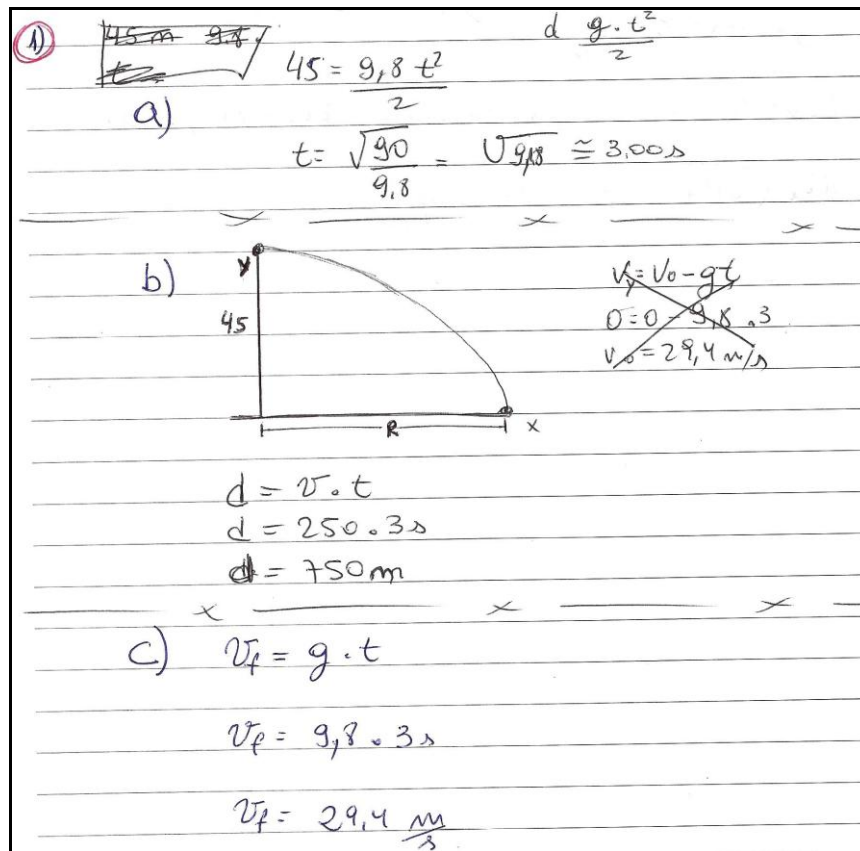 1) 45 m 9.8
t
d g.t²/2
45 = 9,8 t²/2
a)
t = √90/9.8 = √9,18 ≅ 3,00 s
x x x
b)
y
45
R
x
Vy = Vo - gt
0 = 0 - 9,8 .3
vo = 29,4 m/s
d = v.t
d = 250.3s
d = 750m
x x x
c) Vf = g.t
Vf = 9,8.3s
Vf = 29,4 m/s